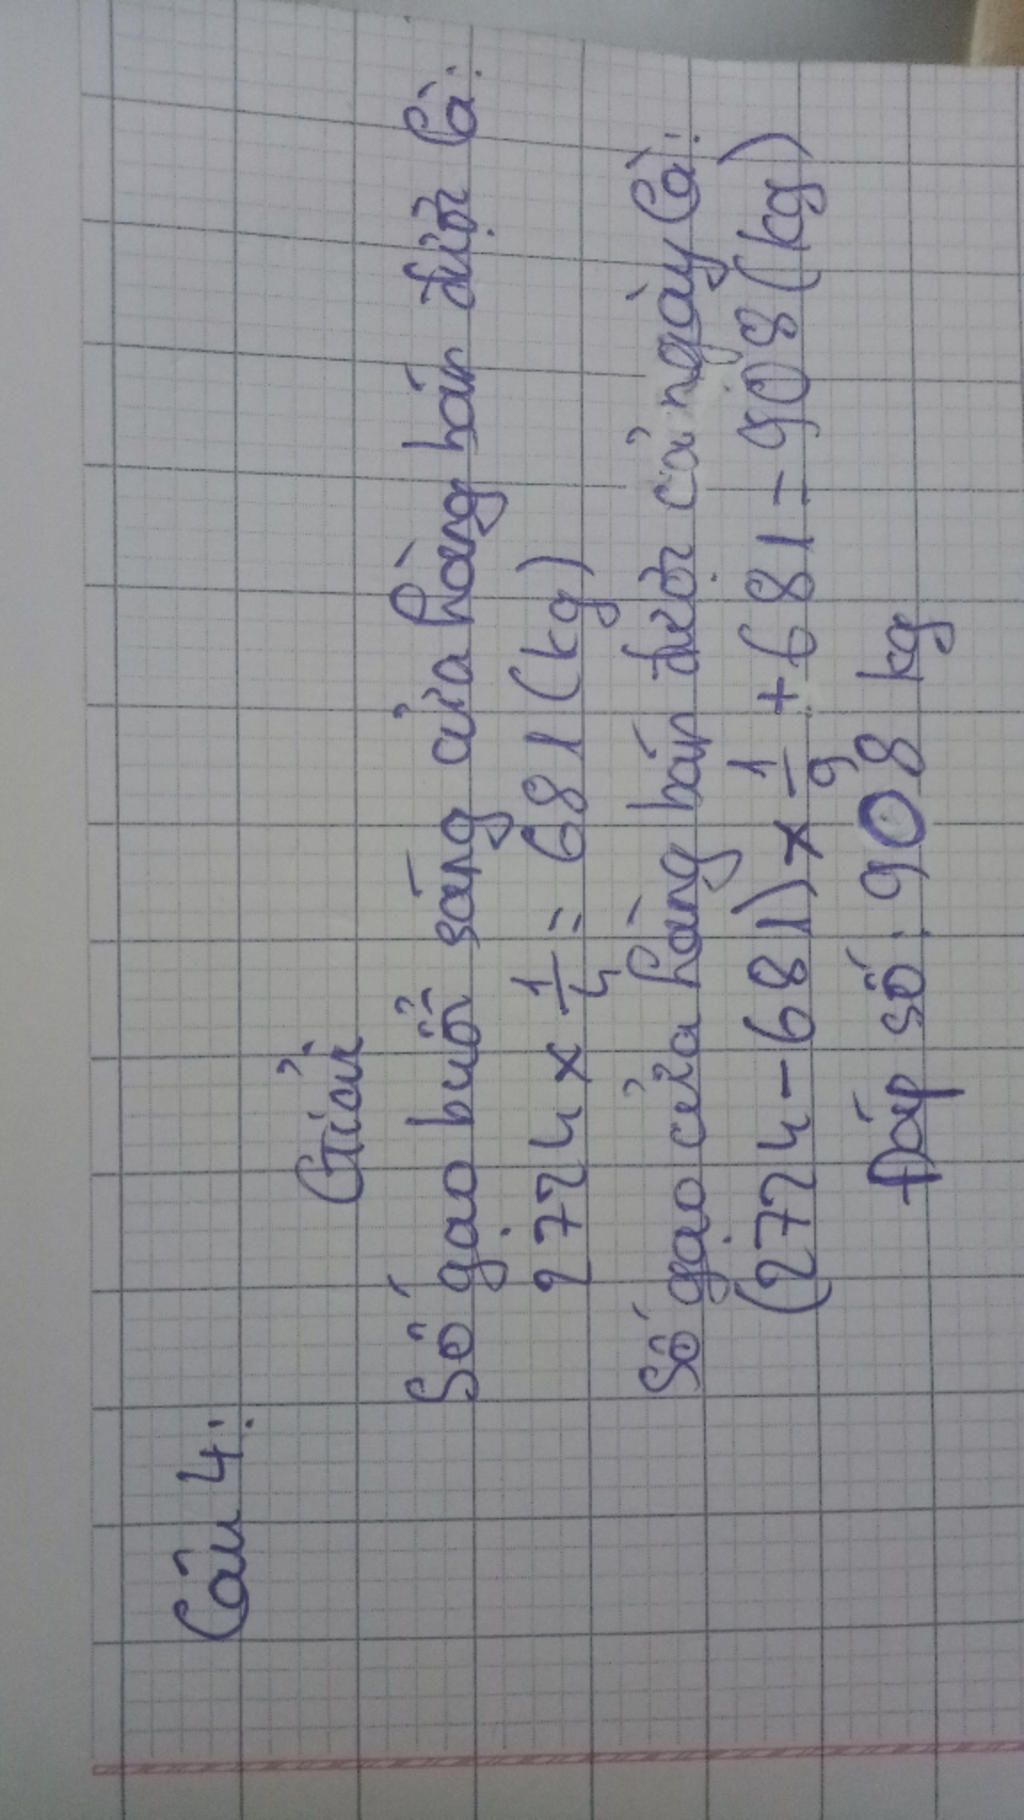 Câu 4:
Giải
Số gạo buổi sáng cửa hàng bán được là:
2724 x 1/4 = 681 (kg)
Số gạo cửa hàng bán được cả ngày là:
(2724 - 681) x 1/9 + 681 = 908 (kg)
Đáp số: 908 kg